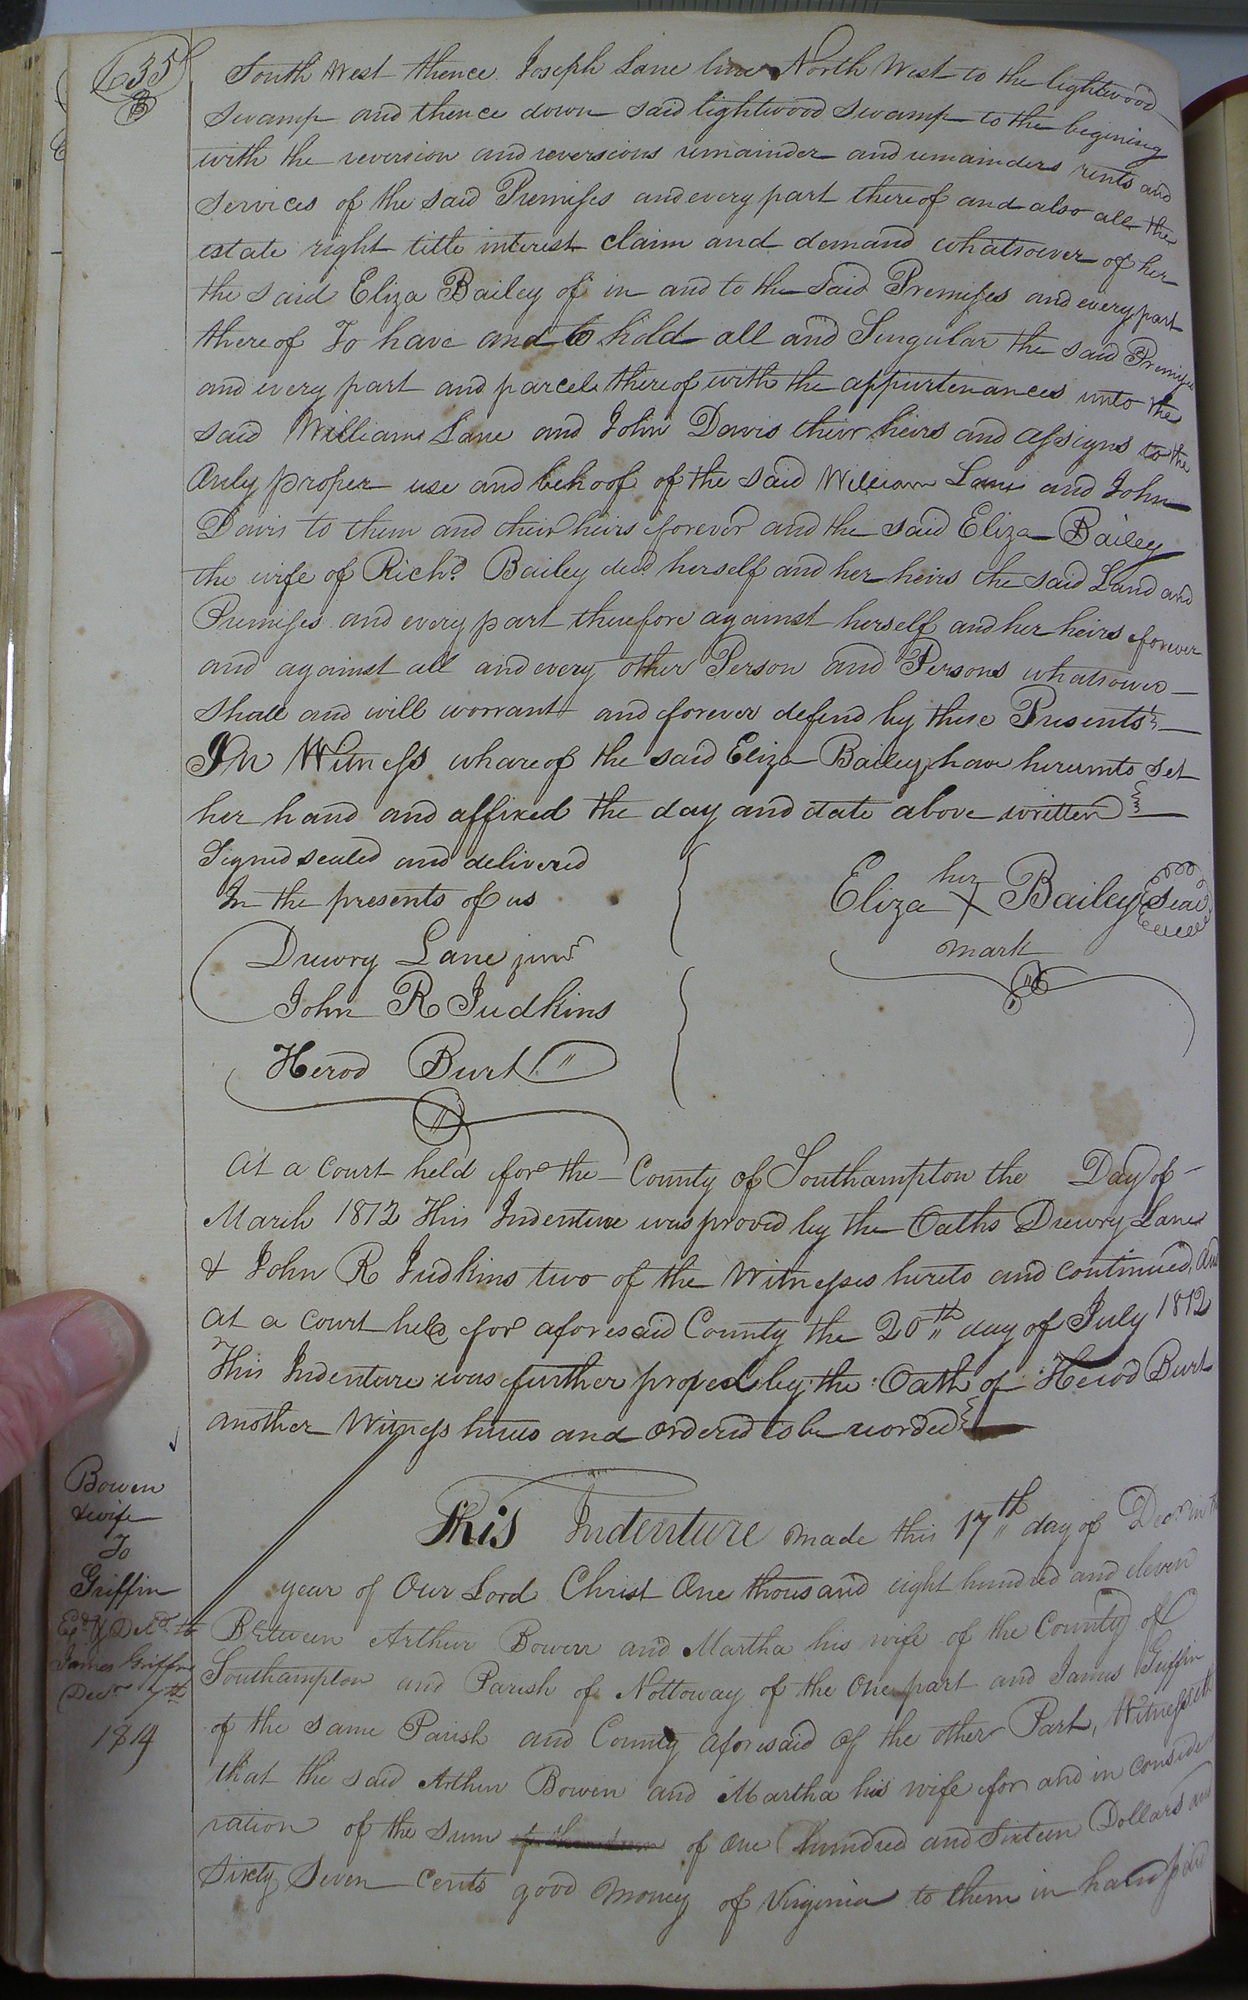 635
South West thence Joseph Lane line North West to the lightwood
swamp and thence down said lightwood swamp to the begining
with the reversion and reversions remainder and remainders rents and
services of the said Premises and every part thereof and also all the
estate right title interest claim and demand whatsoever of her
the said Eliza Bailey of in and to the said Premises and every part
thereof To have and to hold all and Singular the said Premises
and every part and parcel thereof with the appurtenances unto the
said William Lane and John Davis their heirs and assigns to the
only proper use and behoof of the said William Lane and John
Davis to them and their heirs forever and the said Eliza Bailey
the wife of Richd Bailey decd herself and her heirs the said Land and
Premises and every part therefore against herself and her heirs forever
and against all and every other Person and Persons whatsoever
shall and will worrant and forever defend by these Presents
In Witness whareof the said Eliza Bailey have hereunto set
her hand and affixed the day and date above written
Signed sealed and delivered
In the presents of us
Eliza her X mark Bailey Seal
Drewry Lane junr
John R Judkins
Herod Burt
At a Court held for the County of Southampton the Day of
March 1812 This Indenture was proved by the Oaths Drewry Lane
& John R Judkins two of the Witnesses hereto and continued, And
at a court held for aforesaid County the 20th day of July 1812
This Indenture was further proved by the Oath of Herod Burt
another Witness hereto and ordered to be recorded
Bowen
& wife
To
Griffin
Exd & Deld to
James Griffin
Decr 7th
1814
This Indenture made this 17th day of Decr in the
year of Our Lord Christ One thousand eight hundred and eleven
Between Arthur Bowen and Martha his wife of the County of
Southampton and Parish of Nottoway of the One part and James Griffin
of the same Parish and County aforesaid of the other Part, Witnesseth
that the said Arthur Bowen and Martha his wife for and in conside
ration of the sum of One hundred and sixteen Dollars and
sixty seven cents good money of Virginia to them in hand paid